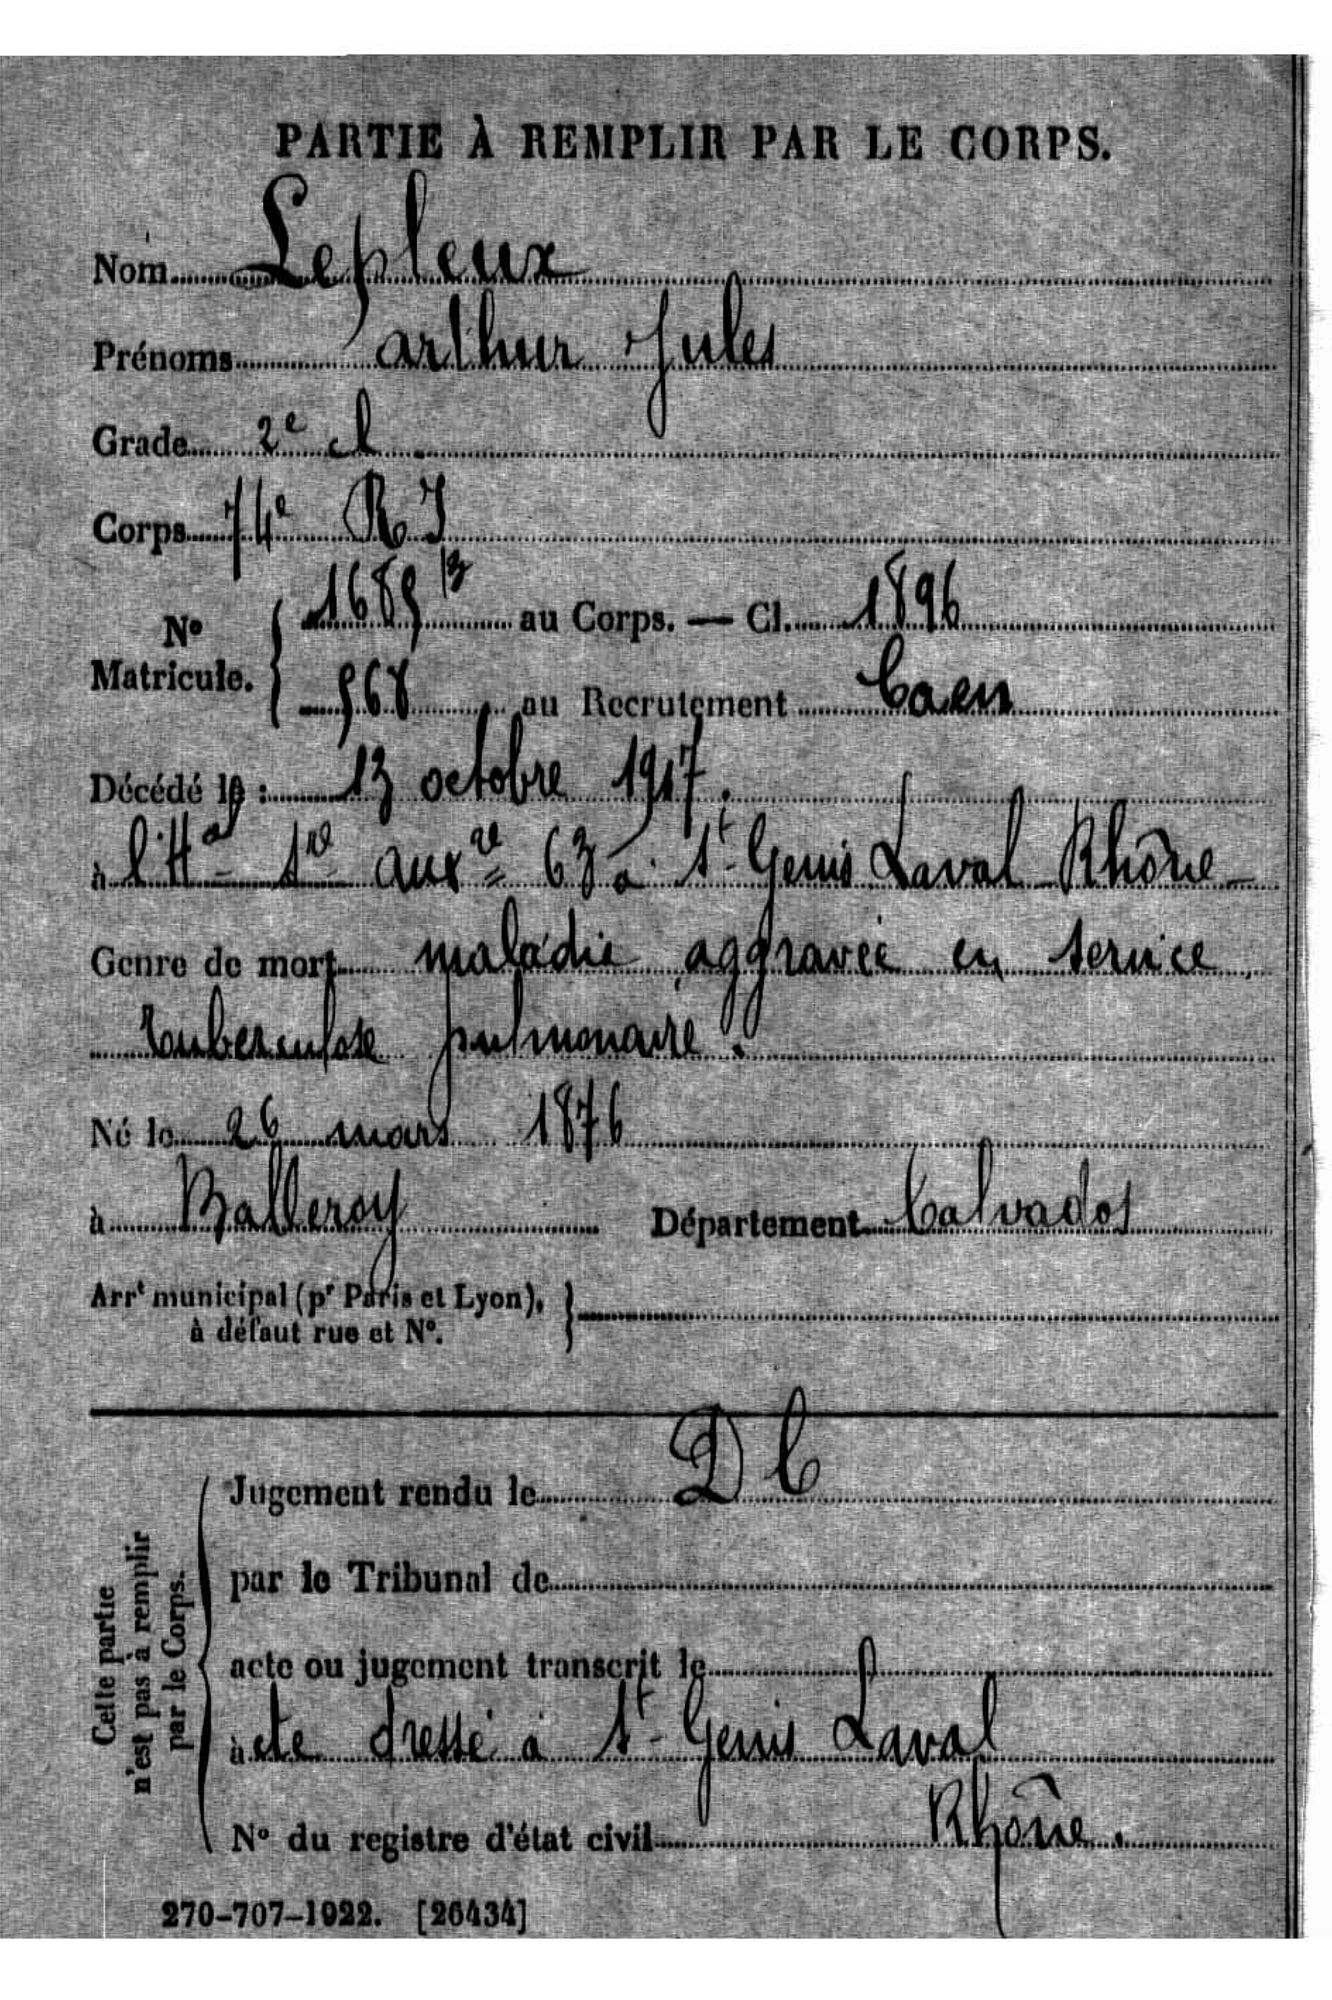 PARTIE À REMPLIR PAR LE CORPS.
Nom Lepleux
Prénoms arthur Jules
Grade 2e cl.
Corps 74e R I
No Matricule. 1689 13 au Corps. — Cl. 1896
968 au Recrutement Caen
Décédé le : 13 octobre 1917.
à l'Hal tre auxre 63 à St-Genis Laval Rhône
Genre de mort maladie aggravée en service
tuberculose pulmonaire.
Né le 26 mars 1876
à Balleroy Département Calvados
Arrt municipal (pr Paris et Lyon),
à défaut rue et No.
Cette partie
n'est pas à remplir
par le Corps.
Jugement rendu le D C
par le Tribunal de
acte ou jugement transcrit le
acte dressé à St-Genis Laval
Rhône.
No du registre d'état civil
270-707-1922. [26434]